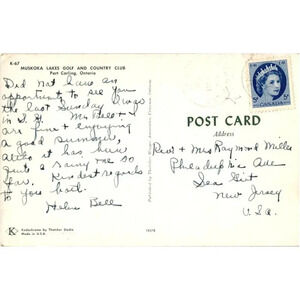 K-67
MUSKOKA LAKES GOLF AND COUNTRY CLUB
Port Carling, Ontario
Did not have an
opportunity to see you
the last Sunday I was
in S. G. Mr Bell & I
are fine & enjoying
a good summer,
altho it has been
quite a rainy one so
far. Kindest regards
to you both.
Helen Bell
K
Kodachrome by Thatcher Studio
Made in U.S.A.
CANADA
5
POST CARD
Address
Rev. & Mrs Raymond Miller
Philadelphia Ave
Sea Girt
New Jersey
U.S.A.